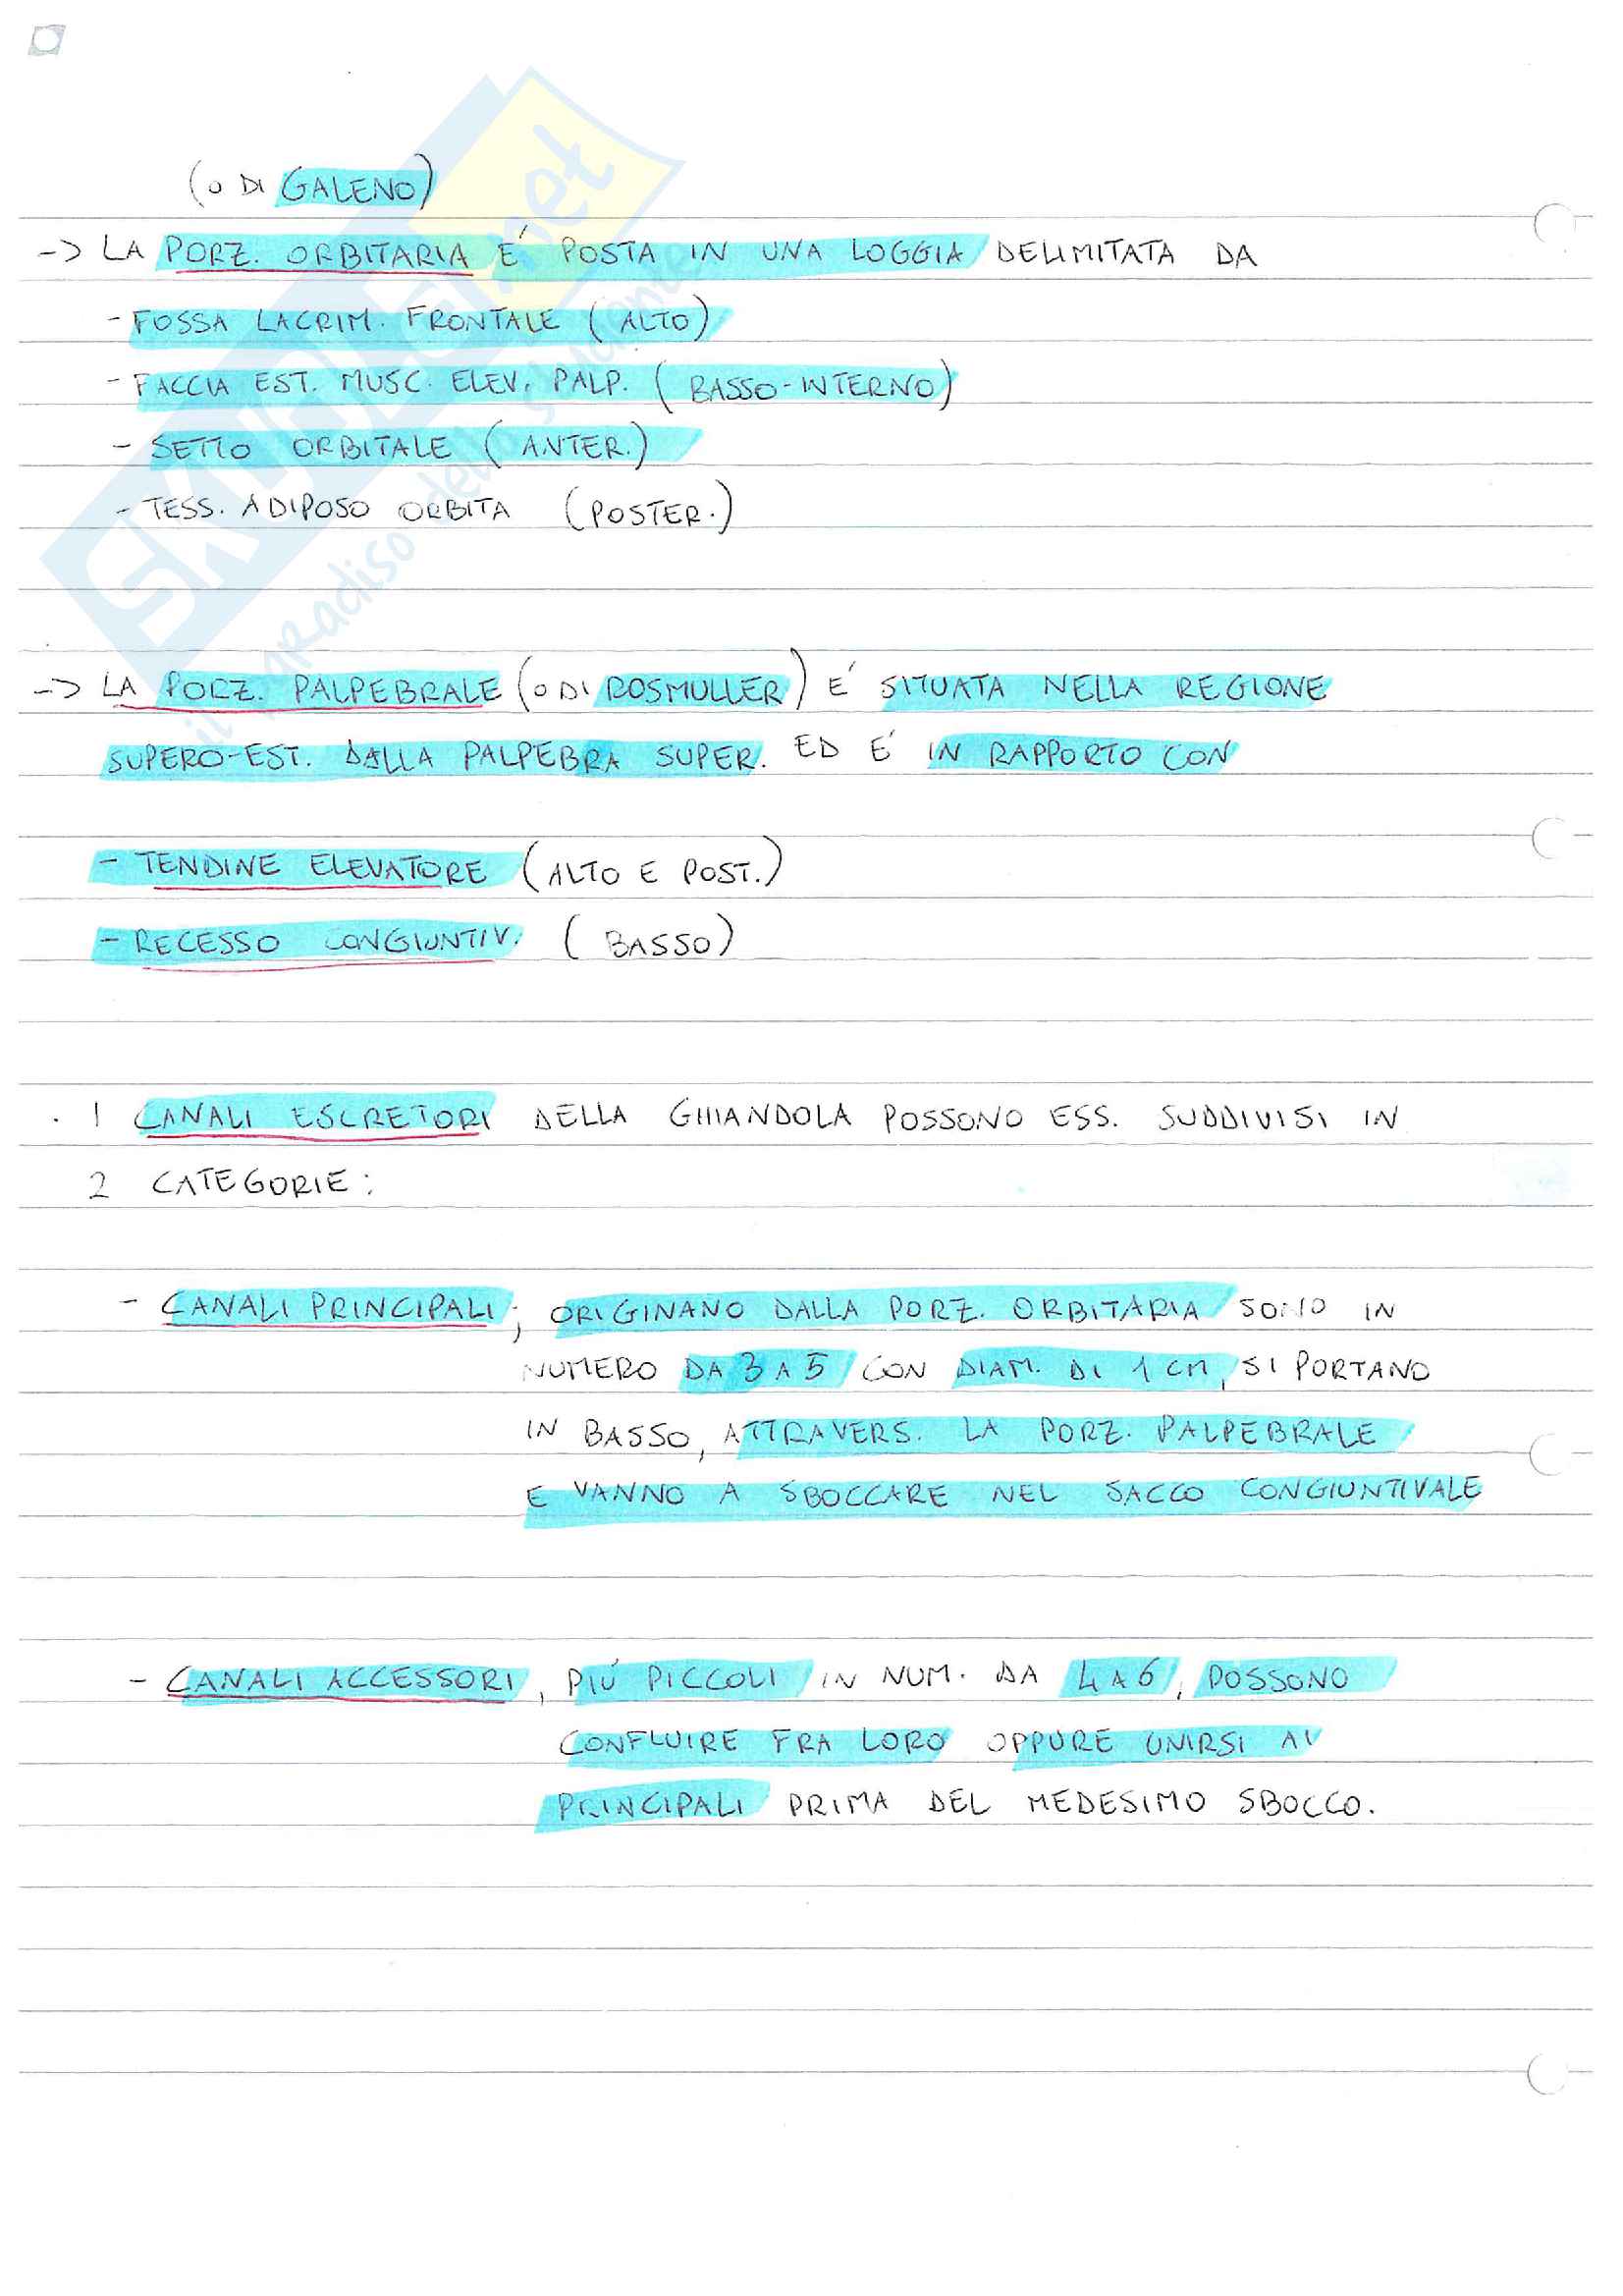 (O DI GALENO)
-> LA PORZ. ORBITARIA E' POSTA IN UNA LOGGIA DELIMITATA DA
- FOSSA LACRIM. FRONTALE (ALTO)
- FACCIA EST. MUSC. ELEV. PALP. (BASSO-INTERNO)
- SETTO ORBITALE (ANTER.)
- TESS. ADIPOSO ORBITA (POSTER.)
-> LA PORZ. PALPEBRALE (O DI ROSMULLER) E' SITUATA NELLA REGIONE
SUPERO-EST. DALLA PALPEBRA SUPER. ED E' IN RAPPORTO CON
- TENDINE ELEVATORE (ALTO E POST.)
- RECESSO CONGIUNTIV. (BASSO)
. I CANALI ESCRETORI DELLA GHIANDOLA POSSONO ESS. SUDDIVISI IN
2 CATEGORIE:
- CANALI PRINCIPALI; ORIGINANO DALLA PORZ. ORBITARIA SONO IN
NUMERO DA 3 A 5 CON DIAM. DI 1 CM, SI PORTANO
IN BASSO, ATTRAVERS. LA PORZ. PALPEBRALE
E VANNO A SBOCCARE NEL SACCO CONGIUNTIVALE
- CANALI ACCESSORI, PIÙ PICCOLI IN NUM. DA 4 A 6, POSSONO
CONFLUIRE FRA LORO OPPURE UNIRSI AI
PRINCIPALI PRIMA DEL MEDESIMO SBOCCO.
SKUOLA.net
il paradiso dello studente